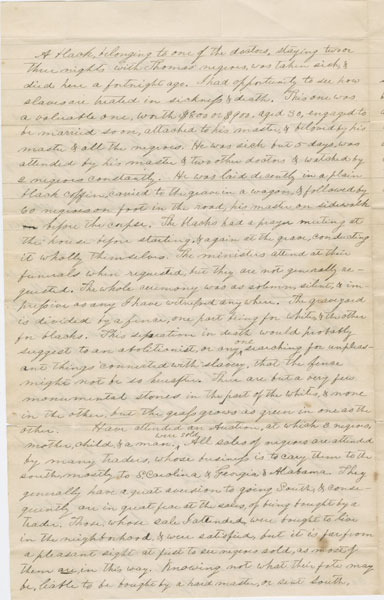 A black, belonging to one of the doctors, staying two or
three nights with Thomas negroes, was taken sick, &
died here a fortnight ago. I had opportunity to see how
slaves are treated in sickness & death. This one was
a valuable one, worth $800 or $900, aged 30, engaged to
be married soon, attached to his master & beloved by his
master & all the negroes. He was sick but 5 days, was
attended by his master & two other doctors & watched by
2 negroes constantly. He was laid decently in a plain
black coffin, carried to the grave in a wagon, & followed by
60 negroes on foot in the road, his master on sidewalk
before the corpse. The blacks had a prayer meeting at
the house before starting, & again at the grave, conducting
it wholly themselves. The ministers attend at their
funerals when requested, but they are not generally re-
quested. The whole ceremony was as solemn, silent, & im
pressive as any I have witnessed any where. The graveyard
is divided by a fence, one part being for whites, & the other
for blacks. This separation in death would probably
suggest to an abolitionist, or any one searching for unpleas-
ant things connected with slavery, that the fence
might not be so hereafter. There are but a very few
monumental stones in the part of the whites, & none
in the other, but the grass grows as green in one as the
other. Have attended an Auction, at which 3 negroes,
mother, child, & a man, were sold. All sales of negroes are attended
by many traders, whose business is to carry them to the
south, mostly to S. Carolina & Georgia & Alabama. They
generally have a great aversion to going South, & conse
quently are in great fear at the sales, of being bought by a
trader. Those whose sale I attended, were bought to live
in the neighborhood & were satisfied, but it is far from
a pleasant sight at first to see negroes sold, as most of
them are in this way. Knowing not what their fate may
be, liable to be bought by a hard master, or sent South.